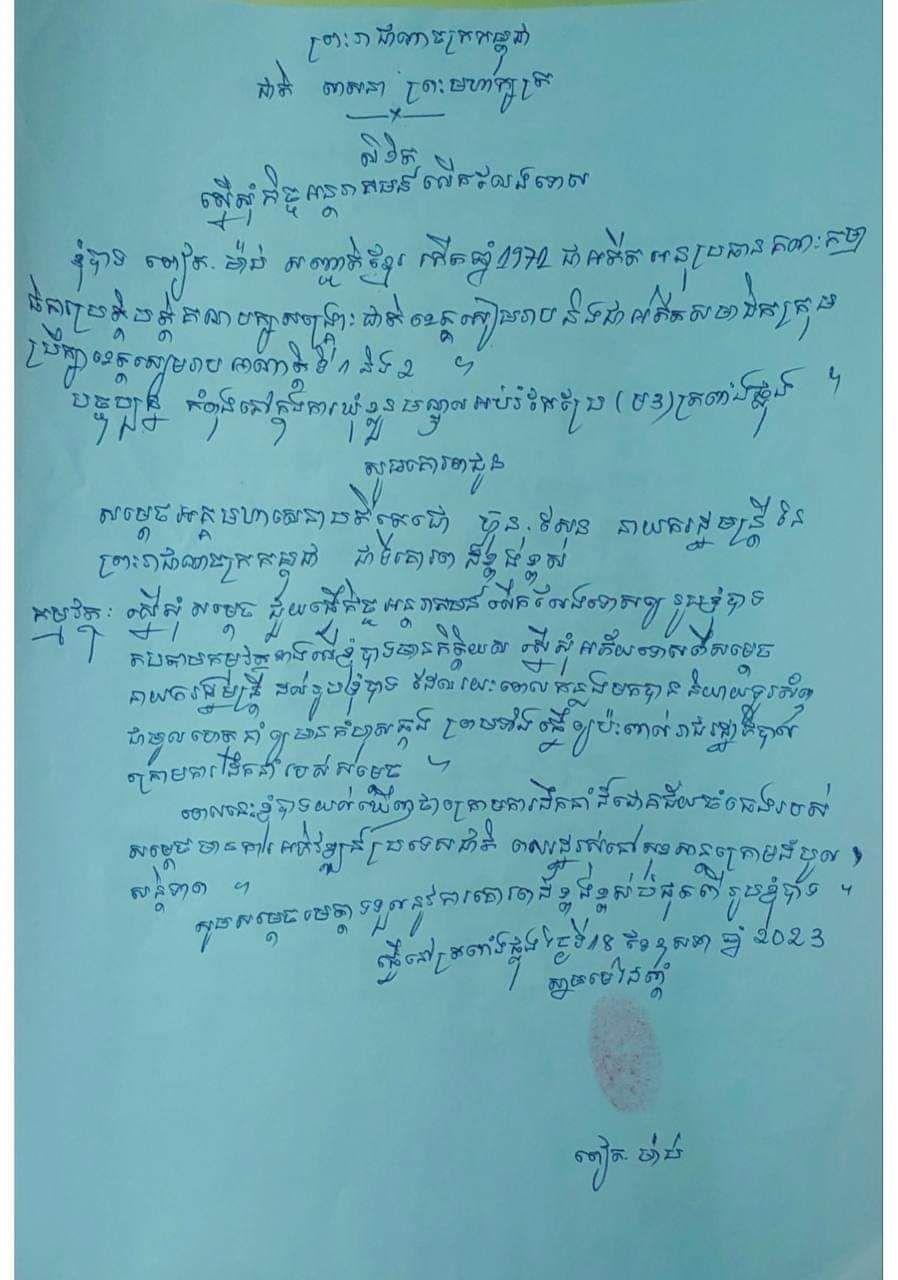 ព្រះរាជាណាចក្រកម្ពុជា
ជាតិ សាសនា ព្រះមហាក្សត្រ
លិខិត
ស្នើសុំកិច្ចអន្តរាគមន៍លើកលែងទោស
ខ្ញុំបាទ ម៉ាប់ សញ្ជាតិខ្មែរ កើតឆ្នាំ1971 ជាអតីតអនុប្រធានគណៈកម្មា
ធិការប្រតិបត្តិគណបក្សសង្គ្រោះជាតិខេត្តសៀមរាប និងជាអតីតសមាជិកក្រុម
ប្រឹក្សាខេត្តសៀមរាប អាណត្តិទី 1 និង 2 ។
បច្ចុប្បន្ន កំពុងនៅក្នុងការឃុំខ្លួនមណ្ឌលអប់រំកែប្រែ (ម3) ត្រពាំងផ្លុង ។
សូមគោរពជូន
សម្តេចអគ្គមហាសេនាបតីតេជោ ហ៊ុន សែន នាយករដ្ឋមន្ត្រីនៃ
ព្រះរាជាណាចក្រកម្ពុជា ជាទីគោរពដ៏ខ្ពង់ខ្ពស់
កម្មវត្ថុៈ ស្នើសុំសម្តេច ជួយធ្វើកិច្ចអន្តរាគមន៍លើកលែងទោសឲ្យ រូបខ្ញុំបាទ
តបតាមកម្មវត្ថុខាងលើខ្ញុំបាទមានកិត្តិយស ស្នើសុំអភ័យទោសពីសម្តេច
នាយករដ្ឋមន្ត្រី ដល់រូបខ្ញុំបាទ ដែលរយៈពេលកន្លងមកបាន និយាយទូរស័ព្ទ
ជាមូលហេតុនាំឲ្យមានកំហុសឆ្គង ព្រមទាំងធ្វើឲ្យប៉ះពាល់រាជរដ្ឋាភិបាល
ក្រោមការដឹកនាំរបស់សម្តេច ។
ពេលនេះខ្ញុំបាទយល់ឃើញថាក្រោមការដឹកនាំដ៏ជោគជ័យចំពេងរបស់
សម្តេចមានការអភិវឌ្ឍន៍ប្រទេសជាតិ ពលរដ្ឋរស់នៅសុខសាន្តក្រោមដំបូល
សន្តិភាព ។
សូមសម្តេចមេត្តាទទួលនូវការគោរពដ៏ខ្ពង់ខ្ពស់បំផុតពី រូបខ្ញុំបាទ ។
ធ្វើនៅត្រពាំងផ្លុង ថ្ងៃទី18 ខែឧសភា ឆ្នាំ 2023
ស្នាមមេដៃស្តាំ
ម៉ាប់